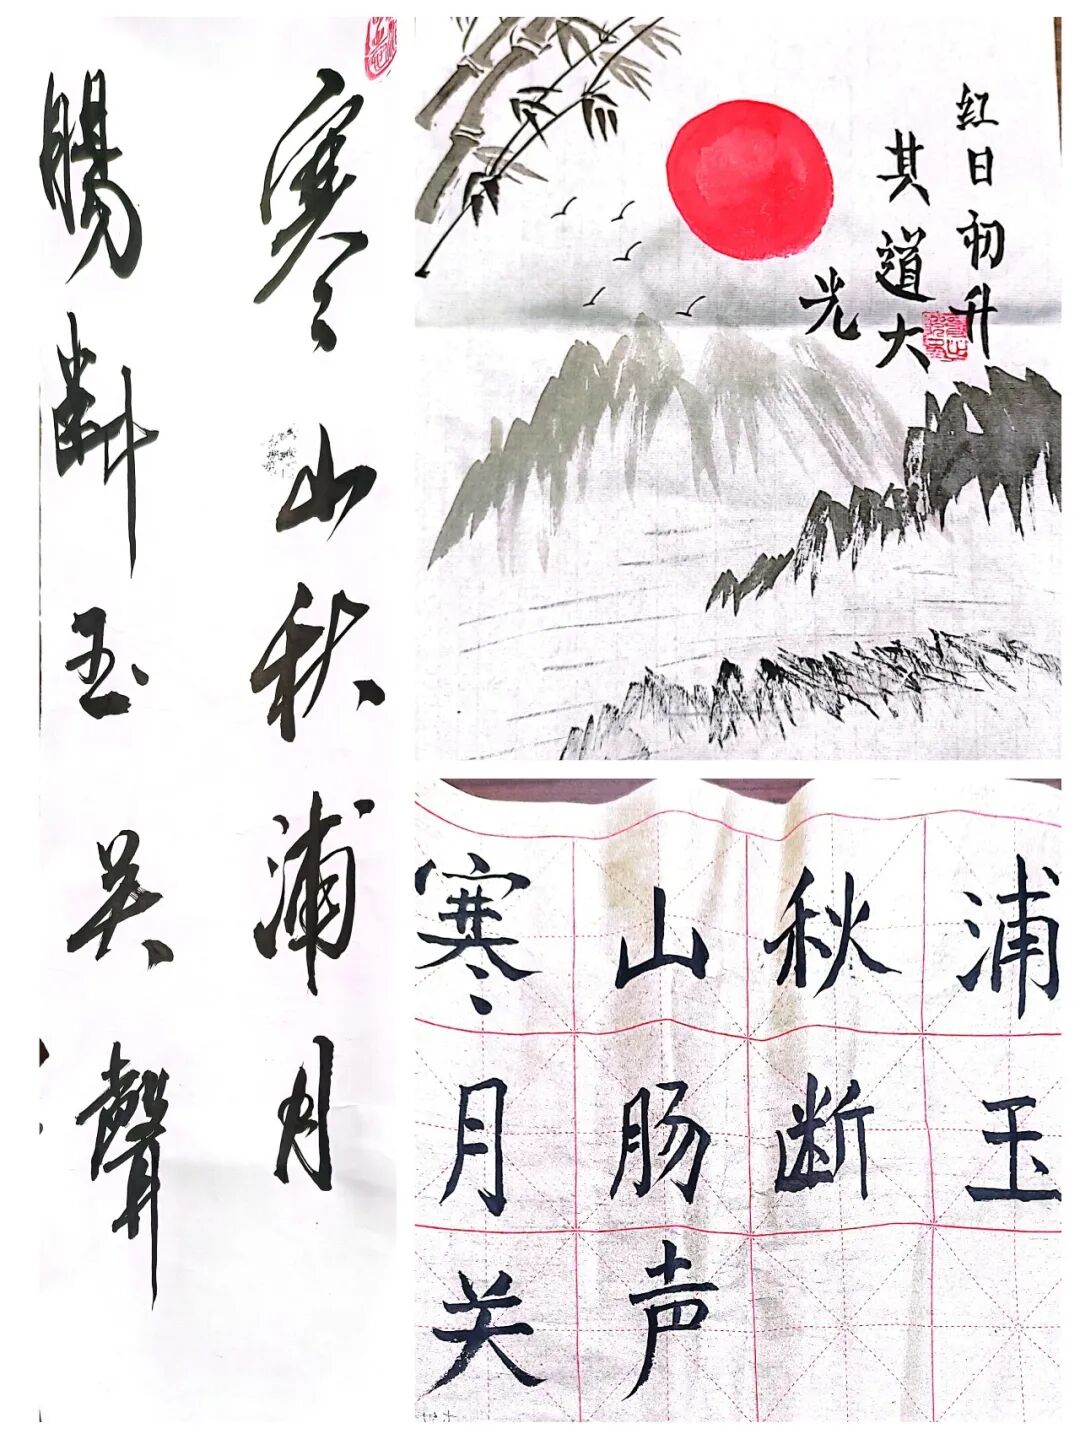 寒山秋浦月
腸斷玉关聲
红日初升
其道大
光
寒山秋浦
月肠断玉
关声